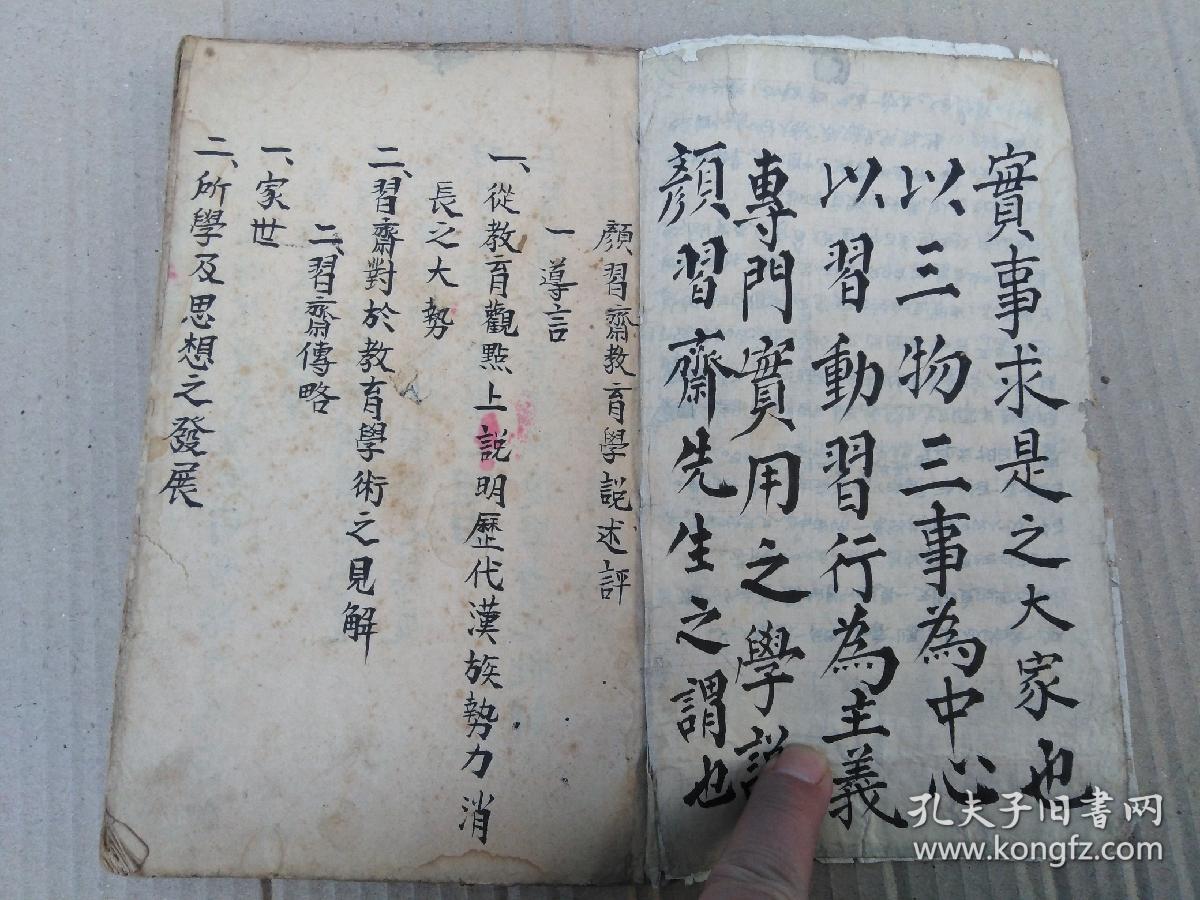 實事求是之大家也
以三物三事為中心
以習動習行為主義
專門實用之學說
顏習齋先生之謂也
顏習齋教育學說述評
一 導言
一、從教育觀點上說明歷代漢族勢力消
長之大勢
二、習齋對於教育學術之見解
二、習齋傳略
一、家世
二、所學及思想之發展
孔夫子旧书网
www.kongfz.com